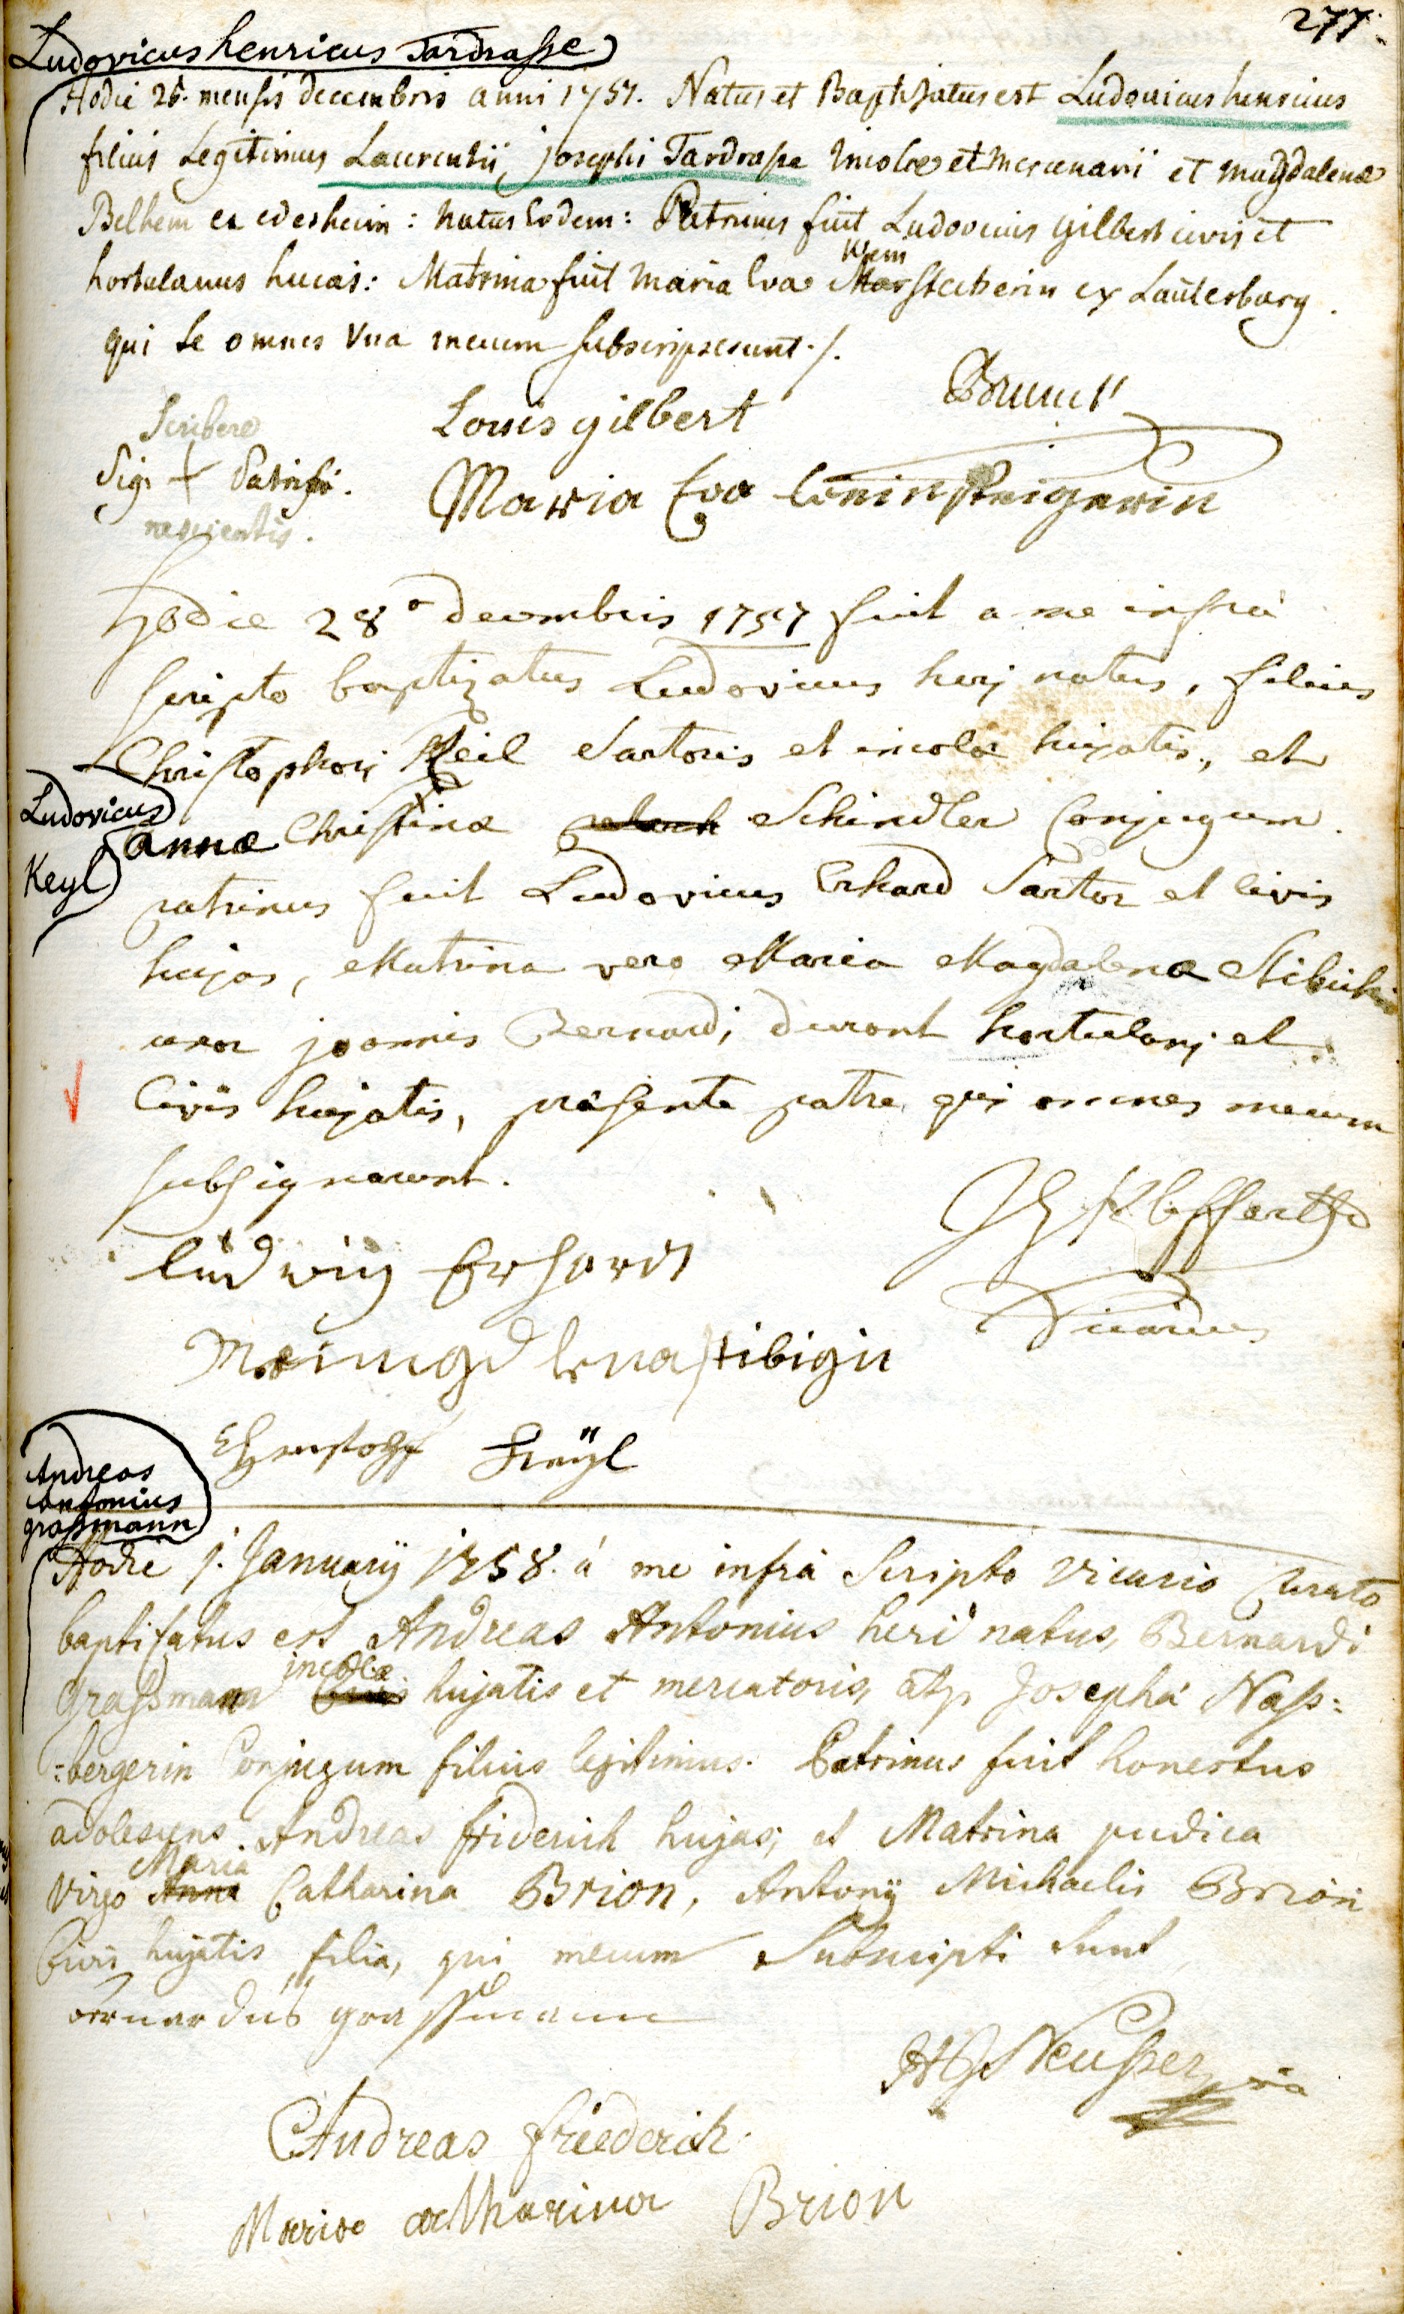 277.
Ludovicus henricus Tardrasse
Hodie 26. mensis decembris anni 1757. Natus et Baptisatus est Ludovicus henricus
filius Legitimus Laurentii, josephi Tardrasse incolae et mercenarii et magdalenae
Belhem ex edesheim: natus eodem: Patrinus fuit Ludovicus gilbert civis et
hortulanus hucas: Matrina fuit Maria Eva ex Lauterburg.
qui se omnes Una mecum subscripserunt ·/.
Brunck
Scribere
Sig. + Patris.
nescientis.
Louis gilbert
Maria Eva
Hodie 28º decembris 1757 fuit a me infra
scripto baptizatus Ludovicus heri natus, filius
Christophori Keil Sartoris et incolae hujatis, et
Ludovicus
Keyl
annae Christinae Schindler Conjugum.
patrinus fuit Ludovicus Erhard Sartor et civis
hujas, Matrina vero Maria Magdalena
uxor joannis Bernardi durant hortulani et
Civis hujatis, praesente patre qui omnes mecum
subsignarunt.
Vicarius
Ludwig Erhardt
stibigin
Christoph Keÿl
Andreas
Antonius
grassmann
Hodie 1. Januarÿ 1758. á me infrà Scripto Vicario Curato
baptisatus est Andreas Antonius heri natus, Bernardi
Grassmann incolae hujatis et mercatoris, atq. Josepha Nass=
=bergerin Conjugum filius legitimus. Patrinus fuit honestus
adolescens Andreas friderich hujas; et Matrina pudica
Virgo Maria Catharina Brion, Antonÿ Michaelis Brion
Civis hujatis filia, qui mecum Subscripti Sunt
bernardus grassmann
Neusser
Andreas friederich
Maria catharina Brion